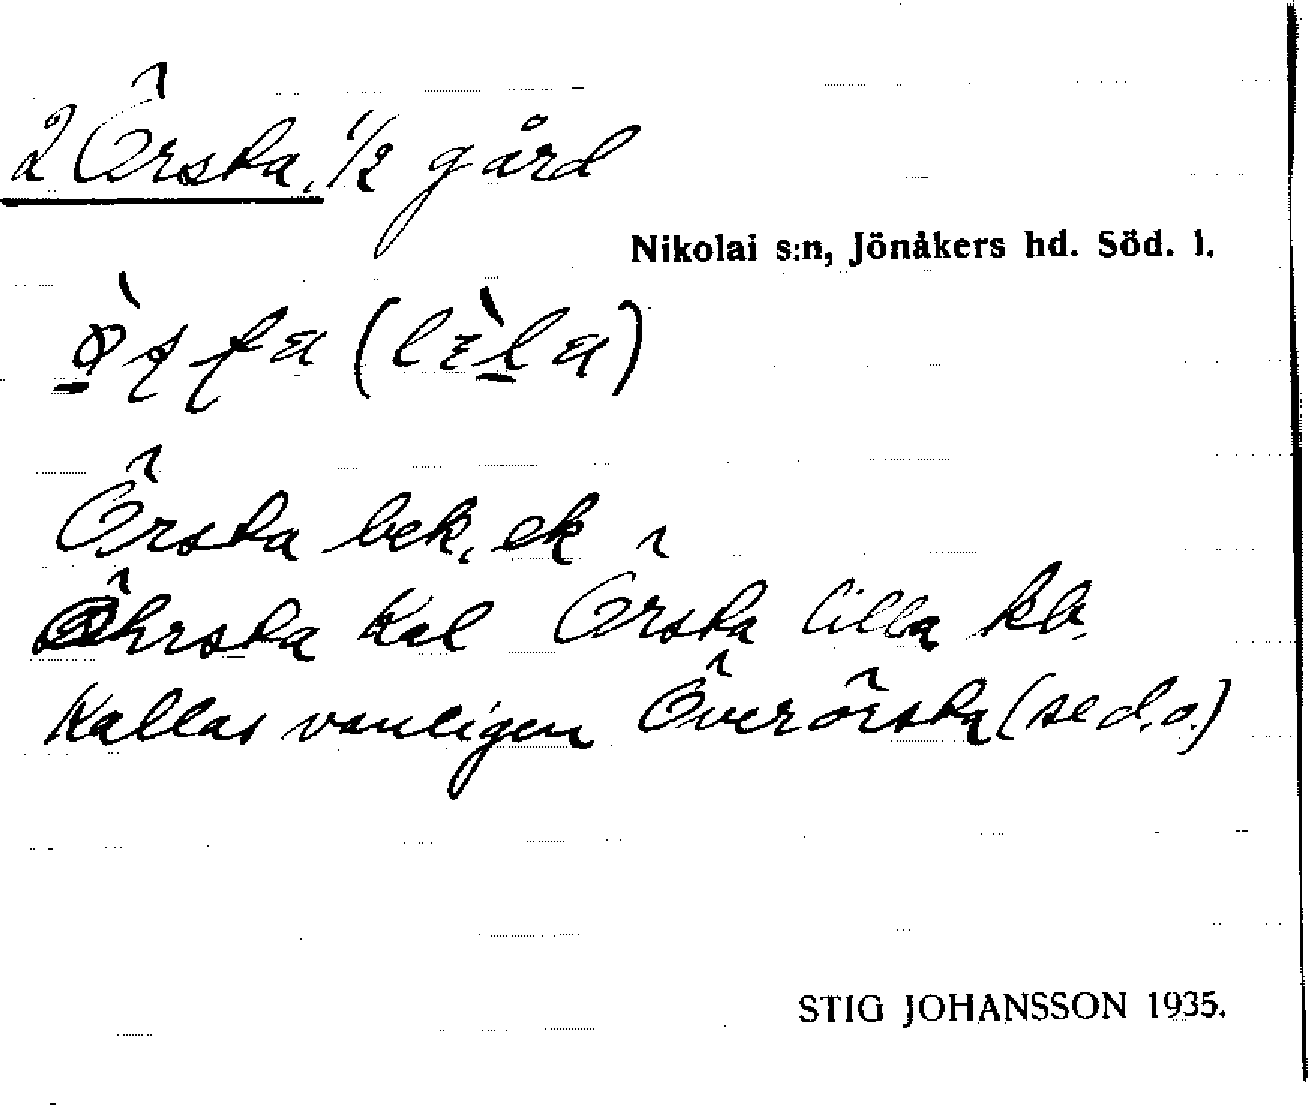 2 Örsta, 1/2 gård
Nikolai s:n, Jönåkers hd. Söd. l.
Örsta bek, ek
Öhrsta Kal Örsta lilla kb.
Kallas vanligen Överörsta (se d.o.)
STIG JOHANSSON 1935.